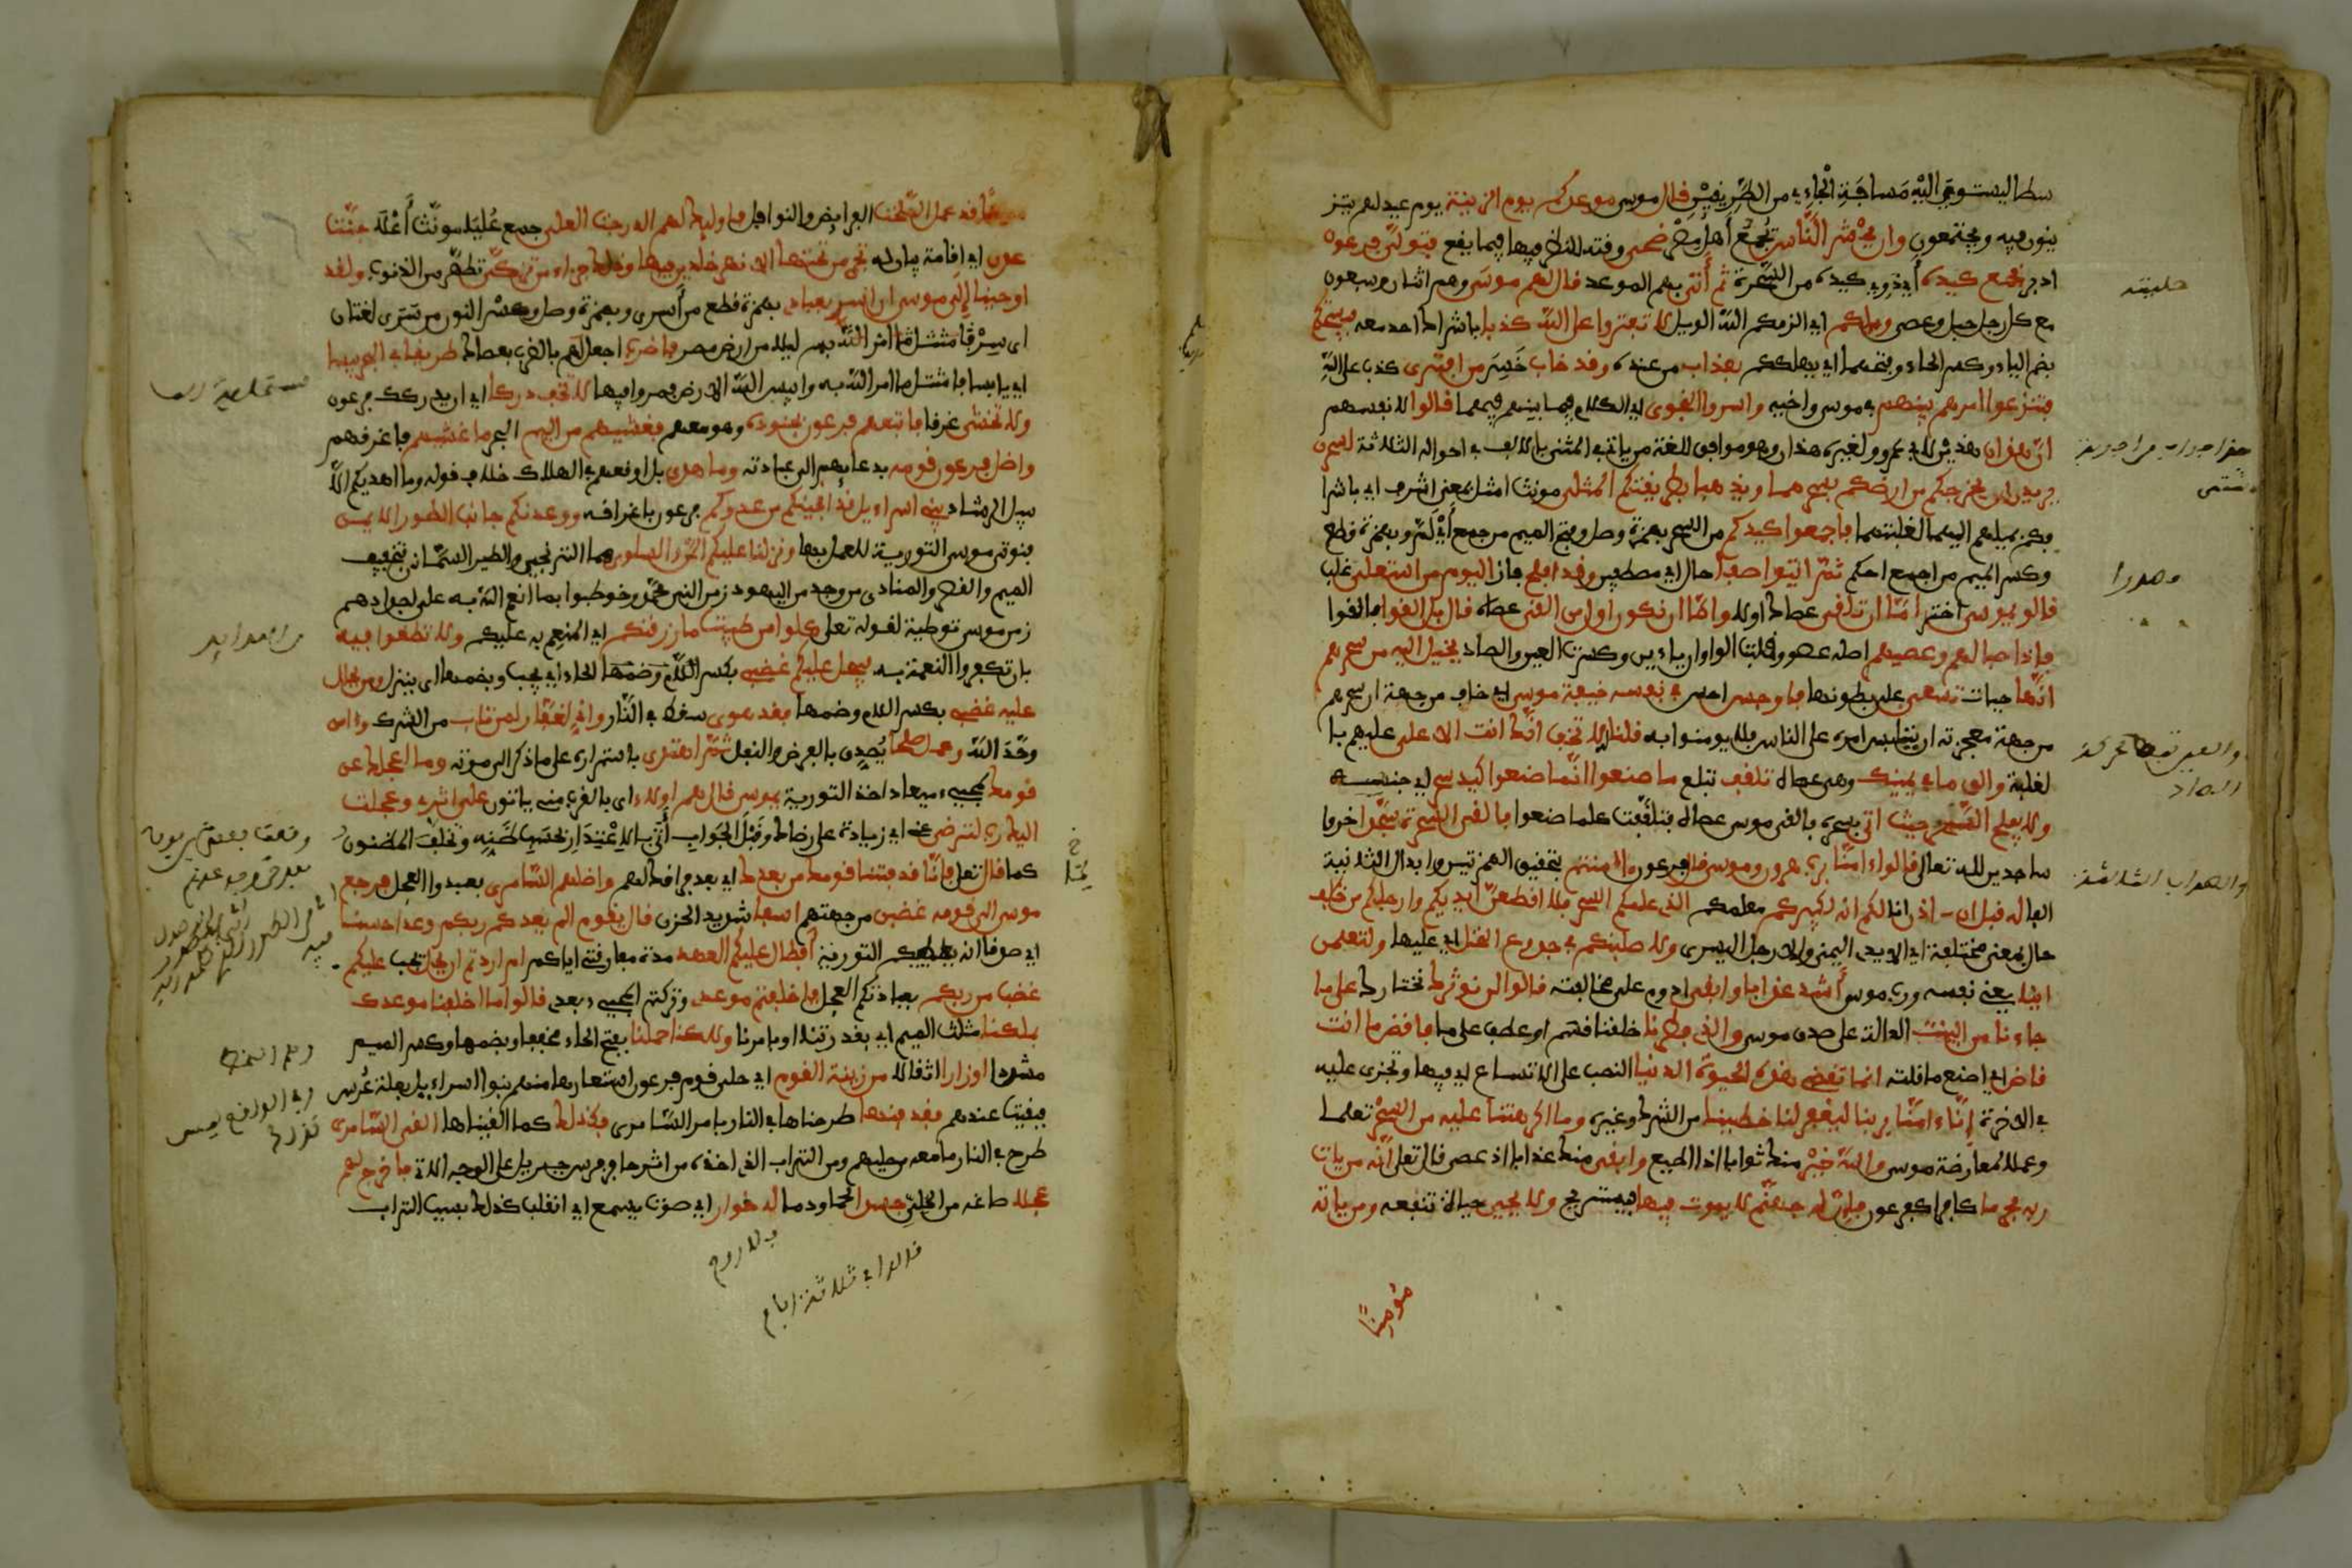 سطا اليستوي اليه مسافة الجاءي من الطرفين قال موسى موعدكم يوم الزينة يوم عيد لهم يتز
ينون فيه ويجتمعون وان يحشر الناس يجمع أهل مصر ضحى وقته للنظر فيها فيما يقع فتولى فرعون
ادبر فجمع كيده أي ذوي كيده من السحرة ثم أتى بهم الموعد قال لهم موسى وهم اثنان وسبعون
مع كل رجل حبل وعصى ويلكم اي الزمكم الله الويل لا تفتروا على الله كذبا باشراك احد معه فيسحتكم
بضم الياء وكسر الحاء وبفتحهما أي يهلككم بعذاب من عنده وقد خاب خسر من افترى كذب على الله
فتنزعوا امرهم بينهم في موسى واخيه واسروا النجوى اي الكلام فيما بينهم فيهما قالوا لانفسهم
ان هذان هذين لابي عمرو ولغيره هذان وهو موافق للغة من ياتي في المثنى بالالف في احواله الثلاثة لسحرن
يريدان ان يخرجكم من ارضكم بسحرهما ويذهبا بطريقتكم المثلى مونث امثل بمعنى اشرف اي باشرا
فكم بميلهم اليهما لغلبتهما فاجمعوا كيدكم من السحر بهمزة وصل وفتح الميم من جمع أي لم وبهمزة قطع
وكسر الميم من اجمع احكم ثم ائتوا صفا حال اي مصطفين وقد افلح فاز اليوم من استعلى غلب
قالو يموسى اختر اما ان تلقى عصاك اولا واما ان نكون اول من القى عصاه قال بل القوا فالقوا
فاذا حبالهم وعصيهم اصله عصوو قلبت الواوان ياءين وكسرت العين والصاد يخيل اليه من سحرهم
انها حيات تسعى على بطونها فاوجس احس في نفسه خيفة موسى اي خاف من جهة ان سحرهم
من جهة معجزته ان يلتبس امره على الناس فلا يومنوا به قلنا لا تخف انك انت الاعلى عليهم با
لغلبة والق ما في يمينك وهي عصاه تلقف تبلع ما صنعوا انما صنعوا كيد سحر اي جنسه
ولا يفلح السحر حيث اتى بسحره فالقى موسى عصاه فتلقفت كلما صنعوا فالقى السحرة سجدا خروا
ساجدين لله تعالى قالوا ءامنا برب هرون وموسى قال فرعون ءامنتم بتحقيق الهمزتين وابدال الثانية
الفا له قبل ان اذن انا لكم انه لكبيركم معلمكم الذي علمكم السحر فلا اقطعن ايديكم وارجلكم من خلف
حال بمعنى مختلفة اي الايدي اليمنى والارجل اليسرى ولا صلبنكم في جذوع النخل اي عليها ولتعلمن
اينا يعني نفسه ورب موسى أشد عذابا وابقى ادوم على مخالفته قالوا لن نوثرك نختارك على ما
جاءنا من البينت الدالة على صدق موسى والذي فطرنا خلقنا قسم او عطف على ما فاقض ما انت
قاض اي اصنع ما قلته انما تقضي هذه الحيوة الدنيا النصب على الاتساع اي فيها وتجزى عليه
في الاخرة إنا ءامنا بربنا ليغفر لنا خطينا من الشرك وغيره وما اكرهتنا عليه من السحر تعلما
وعملا لمعارضة موسى والله خير منك ثوابا اذا اطيع وابقى منك عذابا اذ عصى قال تعلى انه من يات
ربه مجرما كافرا كفرعون فان له جهنم لا يموت فيها فيستريح ولا يحيى حياة تنفعه ومن ياته
مؤمنا
مومنا قد عمل الصلحت الفرايض والنوافل فاوليك لهم الدرجت العلى جمع عليا مونث أعلا جنت
عدن اي اقامة بيان له تجري من تحتها الانهر خلدين فيها وذلك جزاء من تزكى تطهر من الذنوب ولقد
اوحينا إلى موسى ان اسر بعبادي بهمزة قطع من أسرى وبهمزة وصل وكسر النون من سرى لغتان
اي سر بهم ليلا من ارض مصر فاضرب اجعل لهم بالضرب بعصاك طريقا في البحر يبسا
اي يابسا فامتثل ما امر الله به وايبس الله الارض فمروا فيها لا تخف دركا اي ان يدركك فرعون
ولا تخشى غرقا فاتبعهم فرعون بجنوده وهو معهم فغشيهم من اليم البحر ما غشيهم فاغرقهم
واضل فرعون قومه بدعايهم الى عبادته وما هدى بل اوقعهم في الهلاك خلاف قوله وما اهديكم الا
سبيل الرشاد يبني اسراءيل قد انجينكم من عدوكم فرعون باغراقه ووعدنكم جانب الطور الايمن
فنوتي موسى التورية للعمل بها ونزلنا عليكم المن والسلوى هما الترنجبين والطير السمانى بتخفيف
الميم والقصر والمنادى من وجد من اليهود زمن النبي محمد وخوطبوا بما انعم الله به على اجدادهم
زمن موسى توطية لقوله تعلى كلوا من طيبت ما رزقنكم اي المنعم به عليكم ولا تطغوا فيه
بان تكفروا النعمة به فيحل عليكم غضبي بكسر الحاء اي يجب وبضمها اي ينزل ومن يحلل
عليه غضبي بكسر اللام وضمها فقد هوى سقط في النار واني لغفار لمن تاب من الشرك وءامن
وحد الله وعمل صلحا يصدق بالفرض والنفل ثم اهتدى باستمراره على ما ذكر الى موته وما اعجلك عن
قومك لمجيء ميعاد اخذ التورية يموسى قال هم اولاء اي بالقرب مني ياتون على اثري وعجلت
اليك رب لترضى عني اي زيادة على رضاك وقبل الجواب أتى بالاعتذار بحسب ظنه وتخلف المظنون
كما قال تعلى فانا قد فتنا قومك من بعدك اي بعد فراقك لهم واضلهم السامري فعبدوا العجل فرجع
موسى الى قومه غضبن من جهتهم اسفا شديد الحزن قال يقوم الم يعدكم ربكم وعدا حسنا
اي صدقا انه يعطيكم التورية أفطال عليكم العهد مدة مفارقتي اياكم ام اردتم ان يحل يجب عليكم
غضب من ربكم بعبادتكم العجل فاخلفتم موعدي وتركتم المجيء بعدي قالوا ما اخلفنا موعدك
بملكنا مثلث الميم اي بقدرتنا او بامرنا ولكنا حملنا بفتح الحاء مخففا وبضمها وكسر الميم
مشددا اوزارا اثقالا من زينة القوم اي حلي قوم فرعون استعارها منهم بنو اسراءيل بعلة عرس
فبقيت عندهم فقذفنها طرحناها في النار بامر السامري فكذلك كما القيناها القى السامري
طرح في النار ما معه من حليهم ومن التراب الذي اخذه من اثر حافر فرس جبريل على الوجه الاتي فاخرج لهم
عجلا صاغه من الحلي جسدا لحما ودما له خوار اي صوت يسمع اي انقلب كذلك بسبب التراب
بلا روح
قالوا في ثلاثة ايام